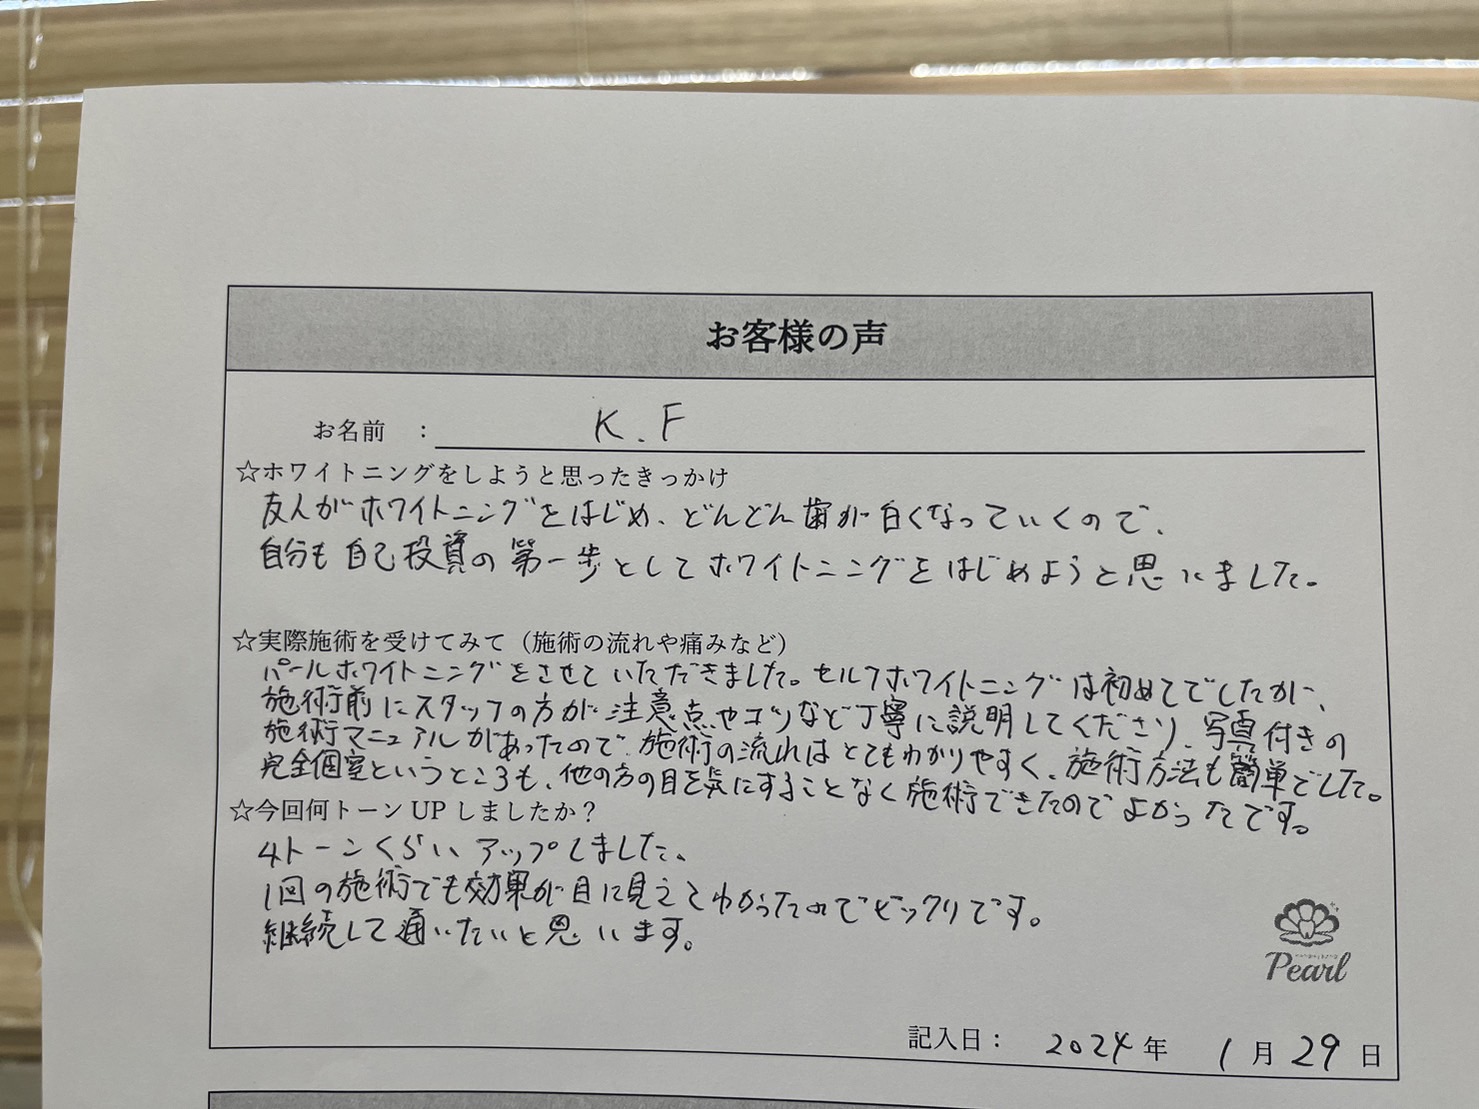 お客様の声
お名前 : K.F
☆ホワイトニングをしようと思ったきっかけ
友人がホワイトニングをはじめ、どんどん歯が白くなっていくので、
自分も自己投資の第一歩としてホワイトニングをはじめようと思いました。
☆実際施術を受けてみて（施術の流れや痛みなど）
パールホワイトニングをさせていただきました。セルフホワイトニングは初めてでしたが、
施術前にスタッフの方が注意点やコツなど丁寧に説明してくださり、写真付きの
施術マニュアルがあったので、施術の流れはとてもわかりやすく、施術方法も簡単でした。
完全個室というところも、他の方の目を気にすることなく施術できたのでよかったです。
☆今回何トーンUPしましたか？
4トーンくらいアップしました。
1回の施術でも効果が目に見えてわかったのでビックリです。
継続して通いたいと思います。
Pearl
記入日： 2024年 1月29日